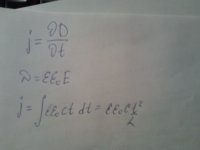 j = ∂D/∂t
D = εε₀E
j = ∫εε₀ct dt = εε₀c t²/2